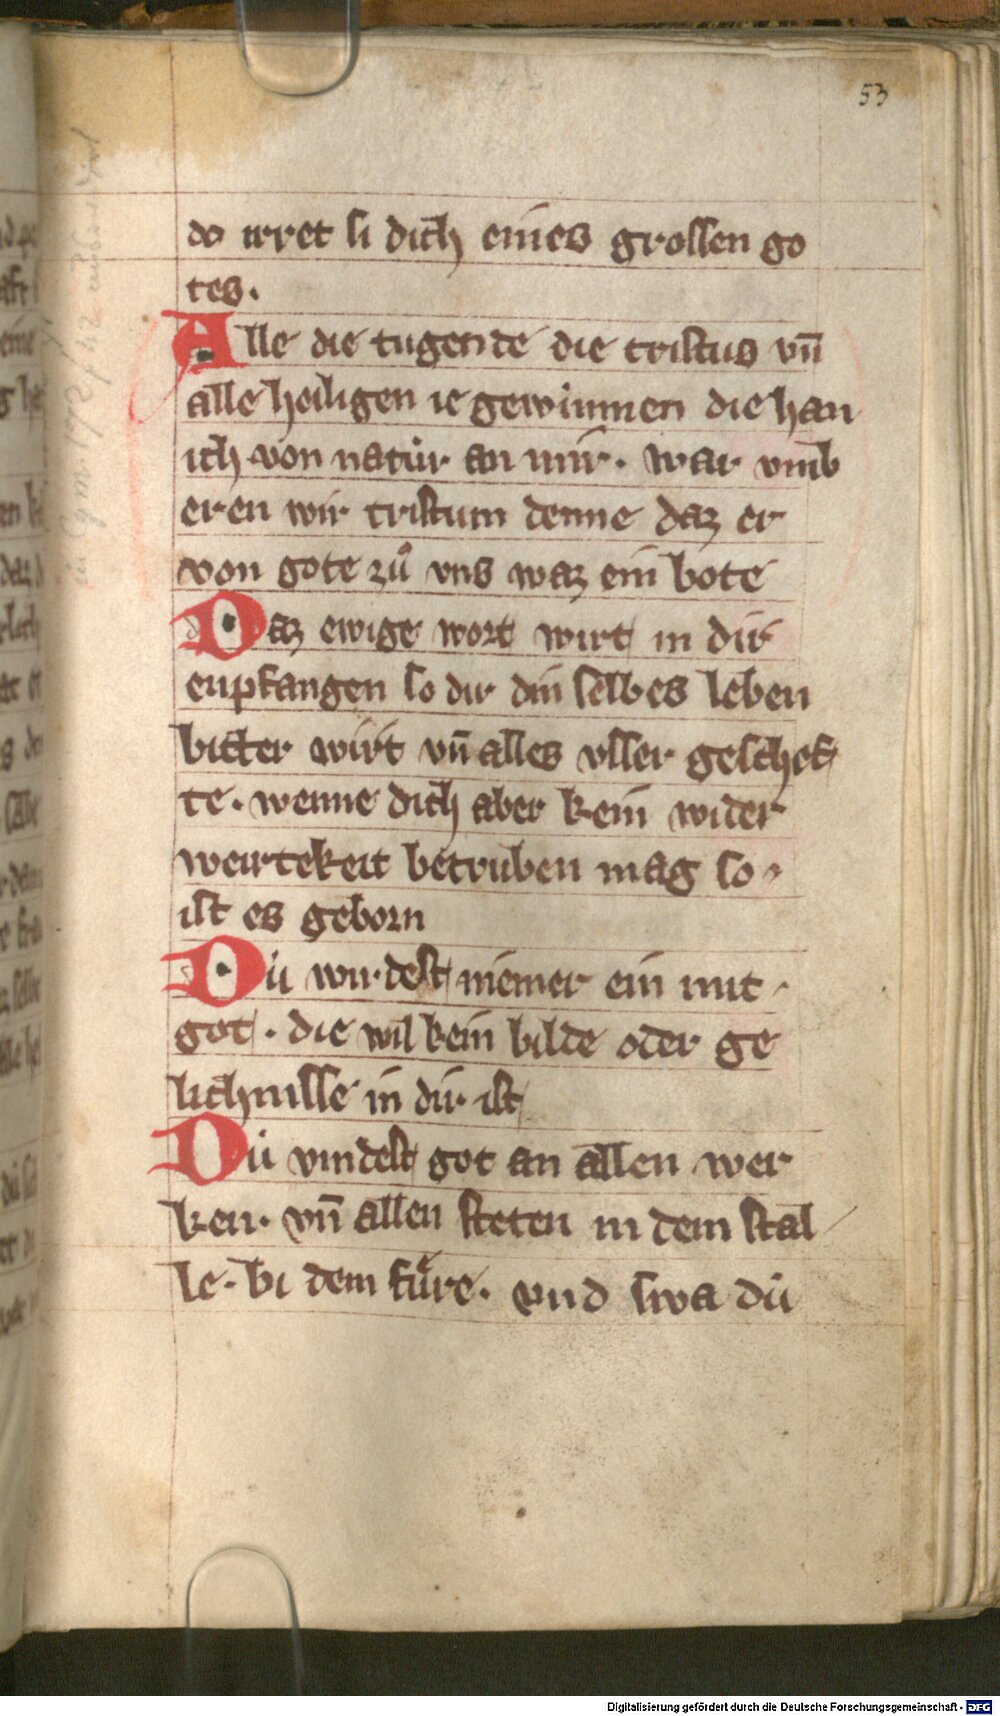 53
do irret si dich eines grossen go
tes.
Alle die tugende die cristus vn̄
alle heiligen ie gewinnen die han
ich von natur an mir. war vmb
eren wir cristum denne daz er
von gote zů vns waz ein bote
Daz ewige wort wirt in dir
enpfangen so dir din selbes leben
bitter wirt vn̄ alles vsser geschef
te. wenne dich aber kein wider
wertekeit betruben mag so
ist es geborn
Du wirdest niemer ein mit
got. die wil kein bilde oder ge
lichnisse in dir ist
Du vindest got an allen wer
ken. vn̄ allen steten in dem stal
le. bi dem fůre. vnd swa du
Digitalisierung gefördert durch die Deutsche Forschungsgemeinschaft - DFG